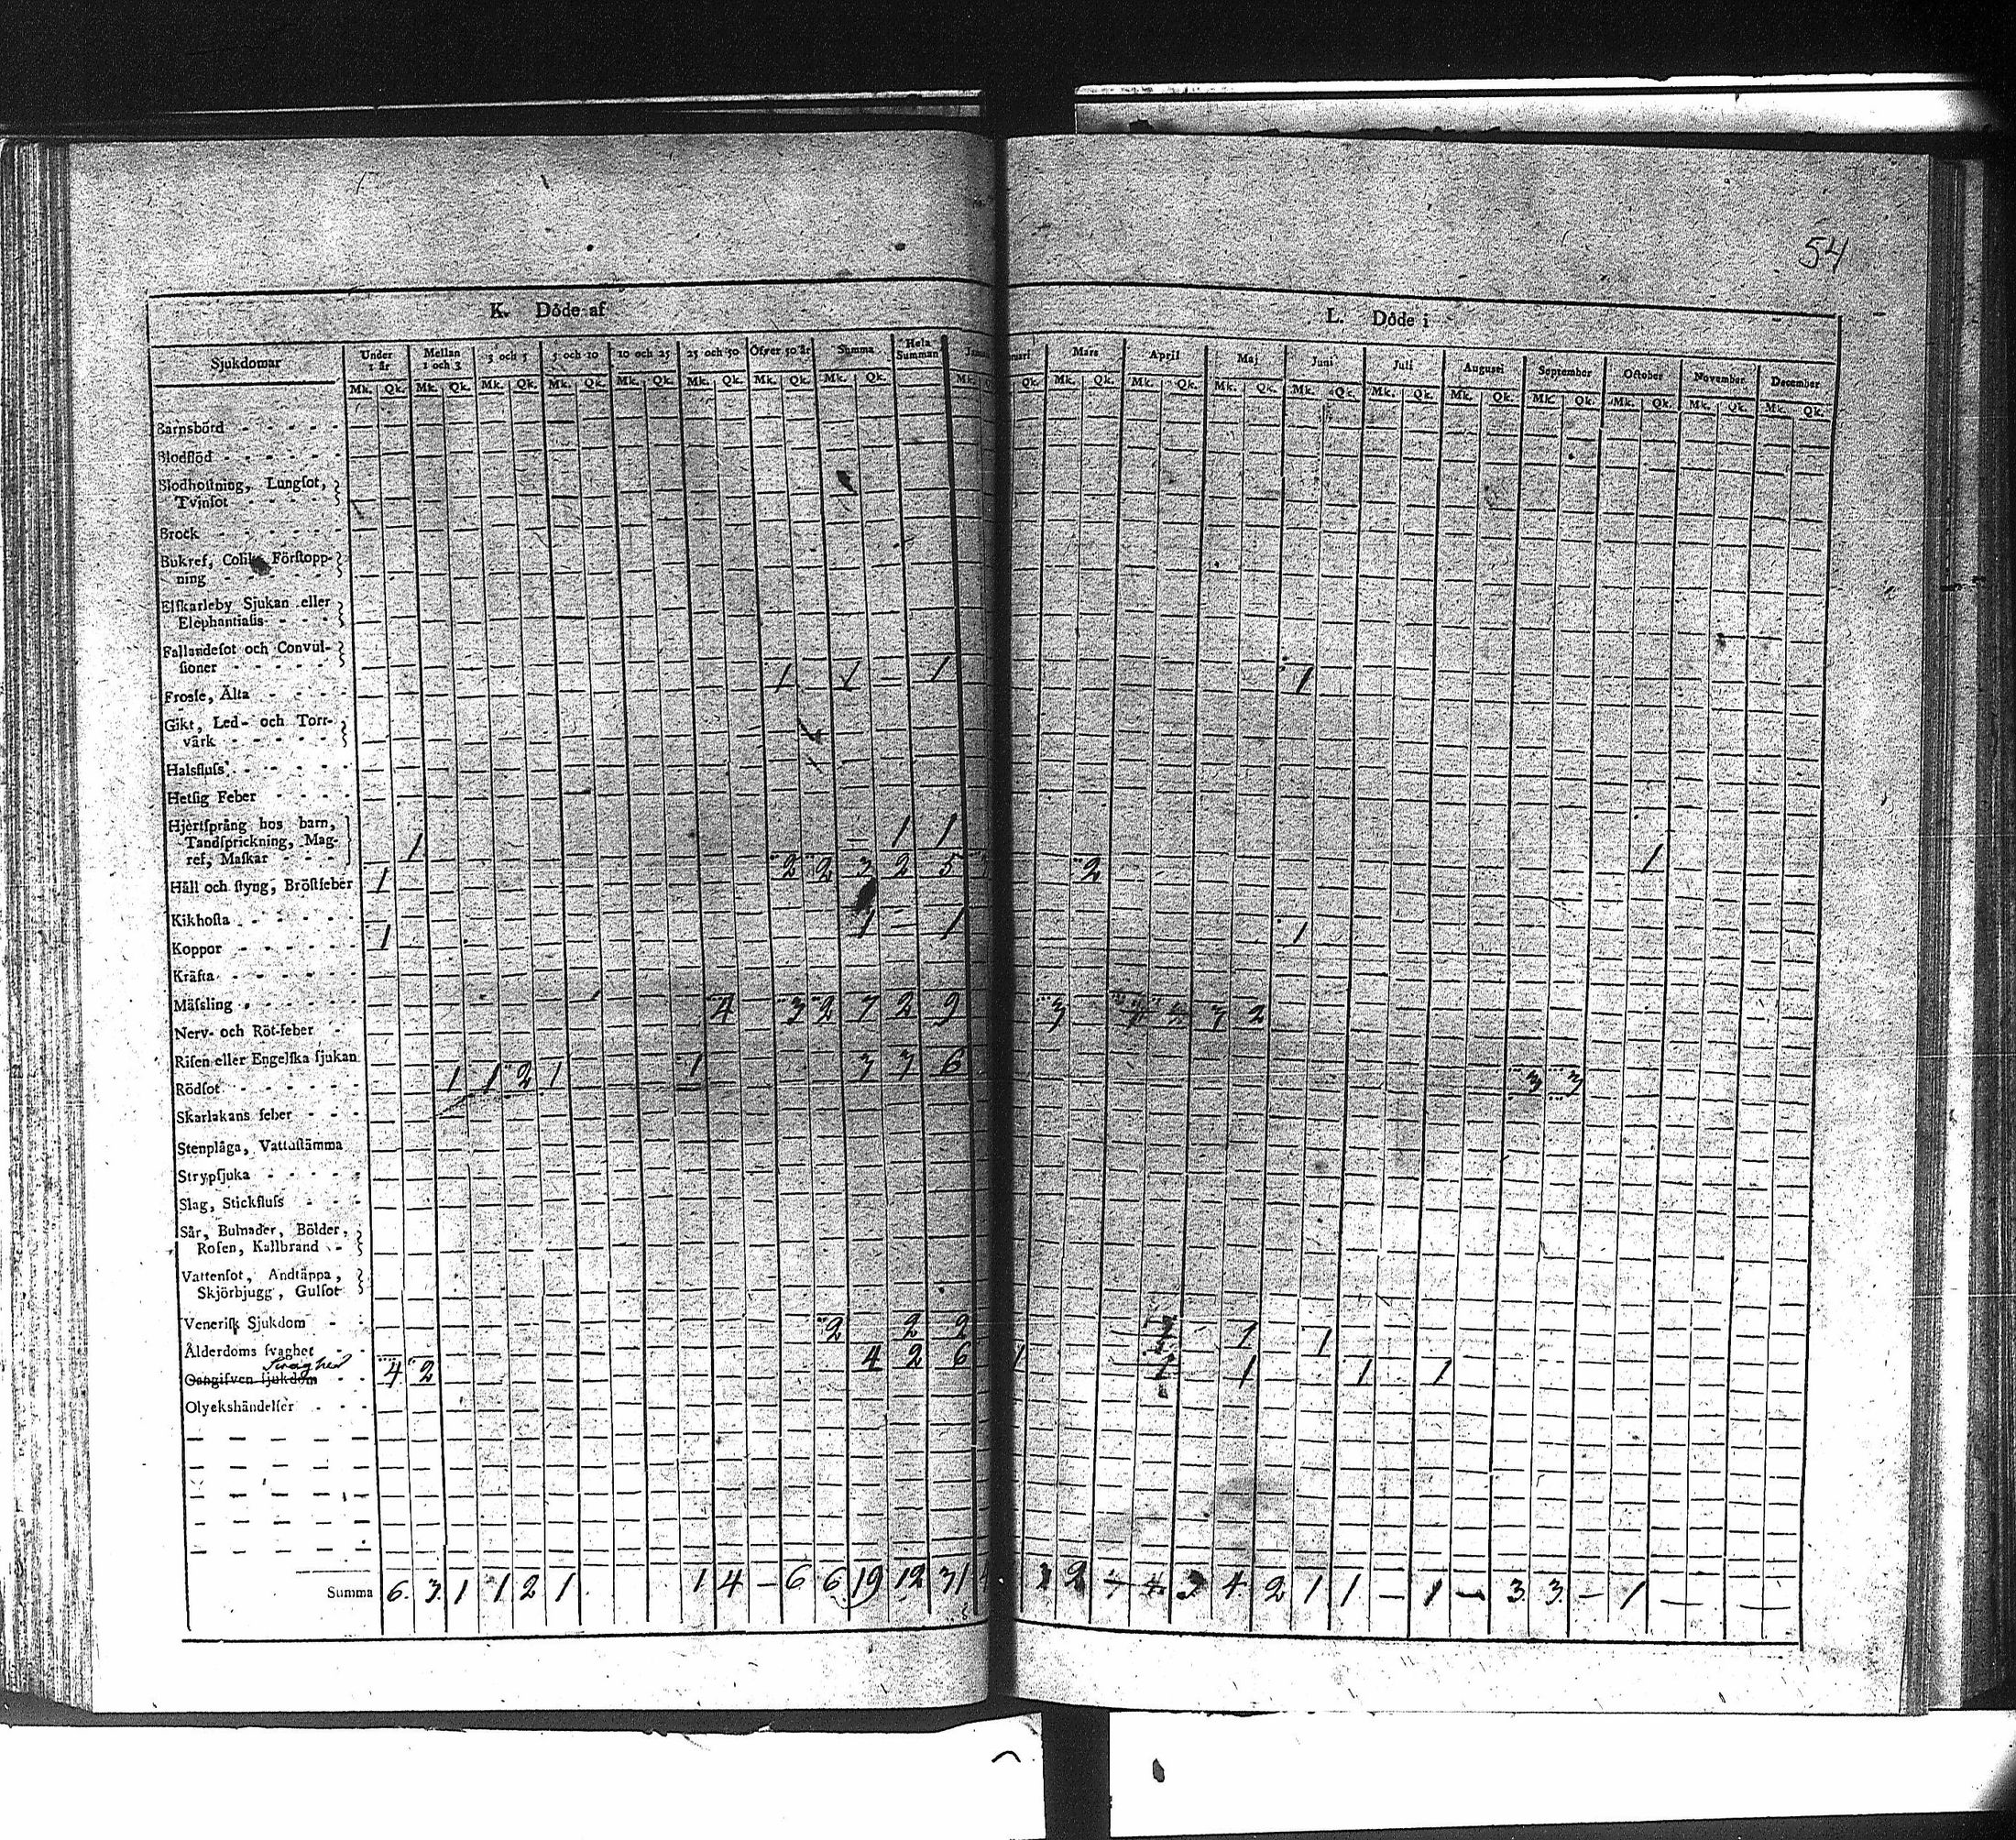 54
K. Döde af
L. Döde i
Sjukdomar Under 1 år Mellan 1 och 3 3 och 5 5 och 10 10 och 25 25 och 50 Öfver 50 år Summa Hela Summan
Mars April Maj Juni Juli Augusti September October November December
Mk. Qk. Mk. Qk. Mk. Qk. Mk. Qk. Mk. Qk. Mk. Qk. Mk. Qk. Mk. Qk. Mk.
Qk. Mk. Qk. Mk. Qk. Mk. Qk. Mk. Qk. Mk. Qk. Mk. Qk. Mk. Qk. Mk. Qk. Mk. Qk. Mk. Qk.
Barnsbörd
Blodflöd
Blodhoſtning, Lungſot,
Tvinſot
Brock
Bukref, Colik, Förſtopp-
ning
Elſkarleby Sjukan eller
Elephantiaſis
Fallandeſot och Convul-
ſioner 1 1 — 1 1
Frosſe, Älta
Gikt, Led- och Torr-
värk
Halsfluſs
Hetſig Feber
Hjertſprång hos barn,
Tandſprickning, Mag-
ref, Maſkar 1 — 1 1 1
Håll och ſtyng, Bröſtfeber 1 2 2 3 2 5 2
Kikhoſta
Koppor 1 1 — 1 1
Kräfta
Mäſsling
Nerv- och Röt-feber 4 3 2 7 2 9 3 3 2
Riſen eller Engelſka ſjukan
Rödſot 1 1 2 1 1 3 3 6 3 3
Skarlakans feber
Stenplåga, Vattuſtämma
Strypſjuka
Slag, Stickfluſs
Sår, Bulnader, Bölder,
Roſen, Kallbrand
Vattenſot, Andtäppa,
Skjörbjugg, Gulſot
Veneriſk Sjukdom
Ålderdoms ſvaghet 2 2 2 1 1
Svaghet
Oangifven ſjukdom 4 2 4 2 6 1 1 1 1 1
Olyckshändelſer
Summa 6 3 1 1 2 1 1 4 — 6 6 19 12 31 2 4 2 1 1 — 1 — 3 3 — 1